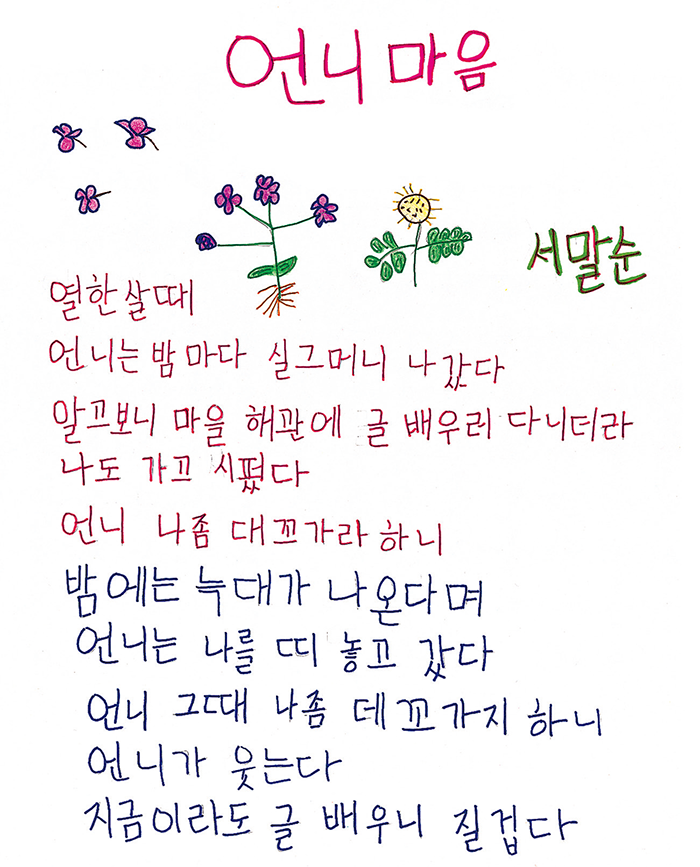 언니 마음
서말순
열한 살 때
언니는 밤마다 실그머니 나갔다
알고보니 마을 해관에 글 배우러 다니더라
나도 가고 시펐다
언니 나좀 대꼬가라 하니
밤에는 늑대가 나온다며
언니는 나를 띠 놓고 갔다
언니 그때 나좀 데꼬가지 하니
언니가 웃는다
지금이라도 글 배우니 질겁다